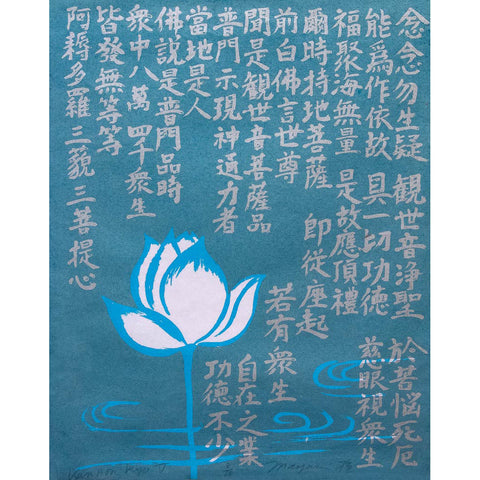 念念勿生疑 觀世音淨聖 於苦惱死厄
能爲作依故 具一切功德 慈眼視衆生
福聚海無量 是故應頂禮
爾時持地菩薩 即從座起
前白佛言世尊 若有衆生
聞是観世音菩薩品 自在之業
普門示現神通力者 功德不少
當地是人
佛説是普門品時
衆中八萬四千衆生
皆發無等等
阿耨多羅三藐三菩提心